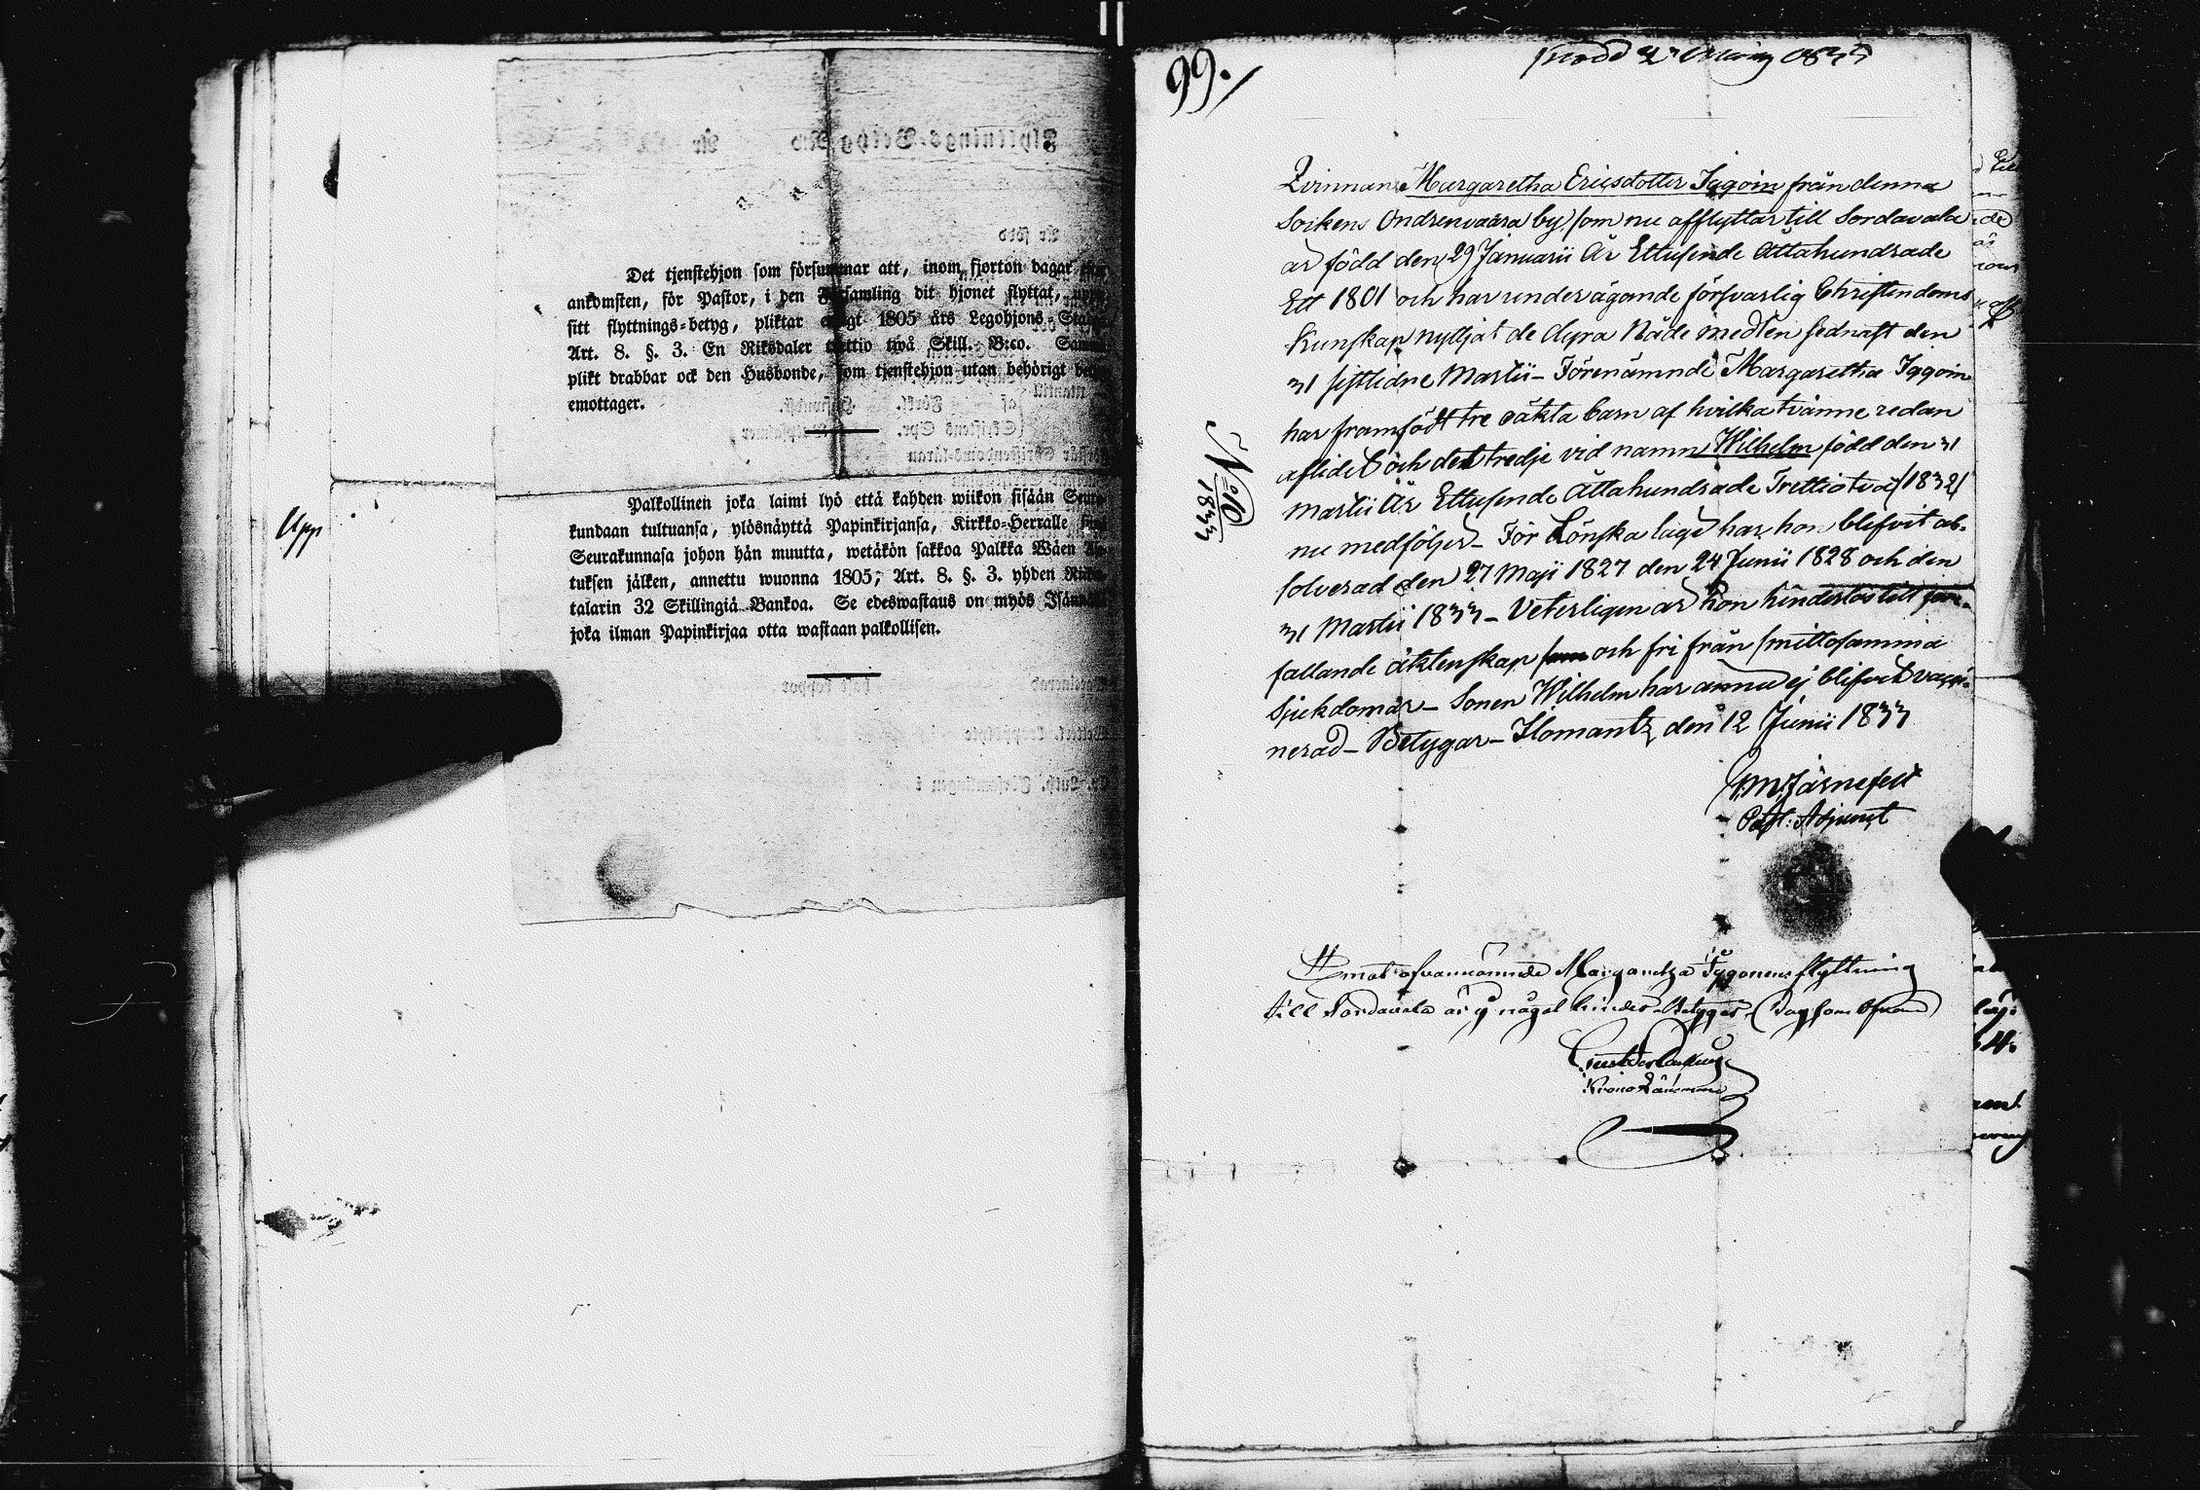 Det tjenstehjon som försummar att, inom fjorton dagar efter
ankomsten, för Pastor, i den Församling dit hjonet flyttat,
sitt flyttnings-betyg, pliktar enligt 1805 års Legohjons-Stadga
Art. 8. §. 3. En Riksdaler trettio twå Skill. B:co. Samma
plikt drabbar ock den Husbonde, som tjenstehjon utan behörigt
emottager.
Palkollinen joka laimi lyö että kahden wiikon sisään Seura-
kundaan tultuansa, ylösnäyttä Papinkirjansa, Kirkko-Herralle
Seurakunnasa johon hän muutta, wetäkön sakkoa Palkka Wäen
tuksen jälken, annettu wuonna 1805, Art. 8. §. 3. yhden Riks-
talarin 32 Skillingiä Bankoa. Se edeswastaus on myös Isännällä
joka ilman Papinkirjaa otta wastaan palkollisen.
Upp
99.
Qvinnan Margaretha Ericsdotter Iggoin från denna
Sockens Ondrenvaara by, som nu afflyttar till Sordavala
är född den 29 Januarii År Ettusende Åttahundrade
Ett 1801 och har under ägande försvarlig Christendoms
Kunskap nyttjat de dyra Nåde medlen sednast den
31 sistlidne Martii – Förenämnde Margaretha Iggoin
har framfödt tre oäkta barn af hvilka tvänne redan
aflidet och det tredje vid namn Wilhelm född den 31
Martii År Ettusende Åttahundrade Trettiotvå /1832/
nu medföljer – För Lönska läge har hon blifvit ab-
solverad den 27 Maji 1827 den 24 Junii 1828 och den
31 Martii 1833 – Veterligen är hon hinderlös till före-
fallande äktenskap och fri från smittosamma
Sjukdomar – Sonen Wilhelm har ännu ej blifvit vacci-
nerad – Betygar – Ilomantz den 12 Junii 1833
G.M. Järnefelt
Past: Adjunct
No 10
1833
Emot ofvannämnde Margaretha Iggonens flyttning
till Sordavala är ej något hinder, Betygar, Dag som ofvan
Krono Länsman